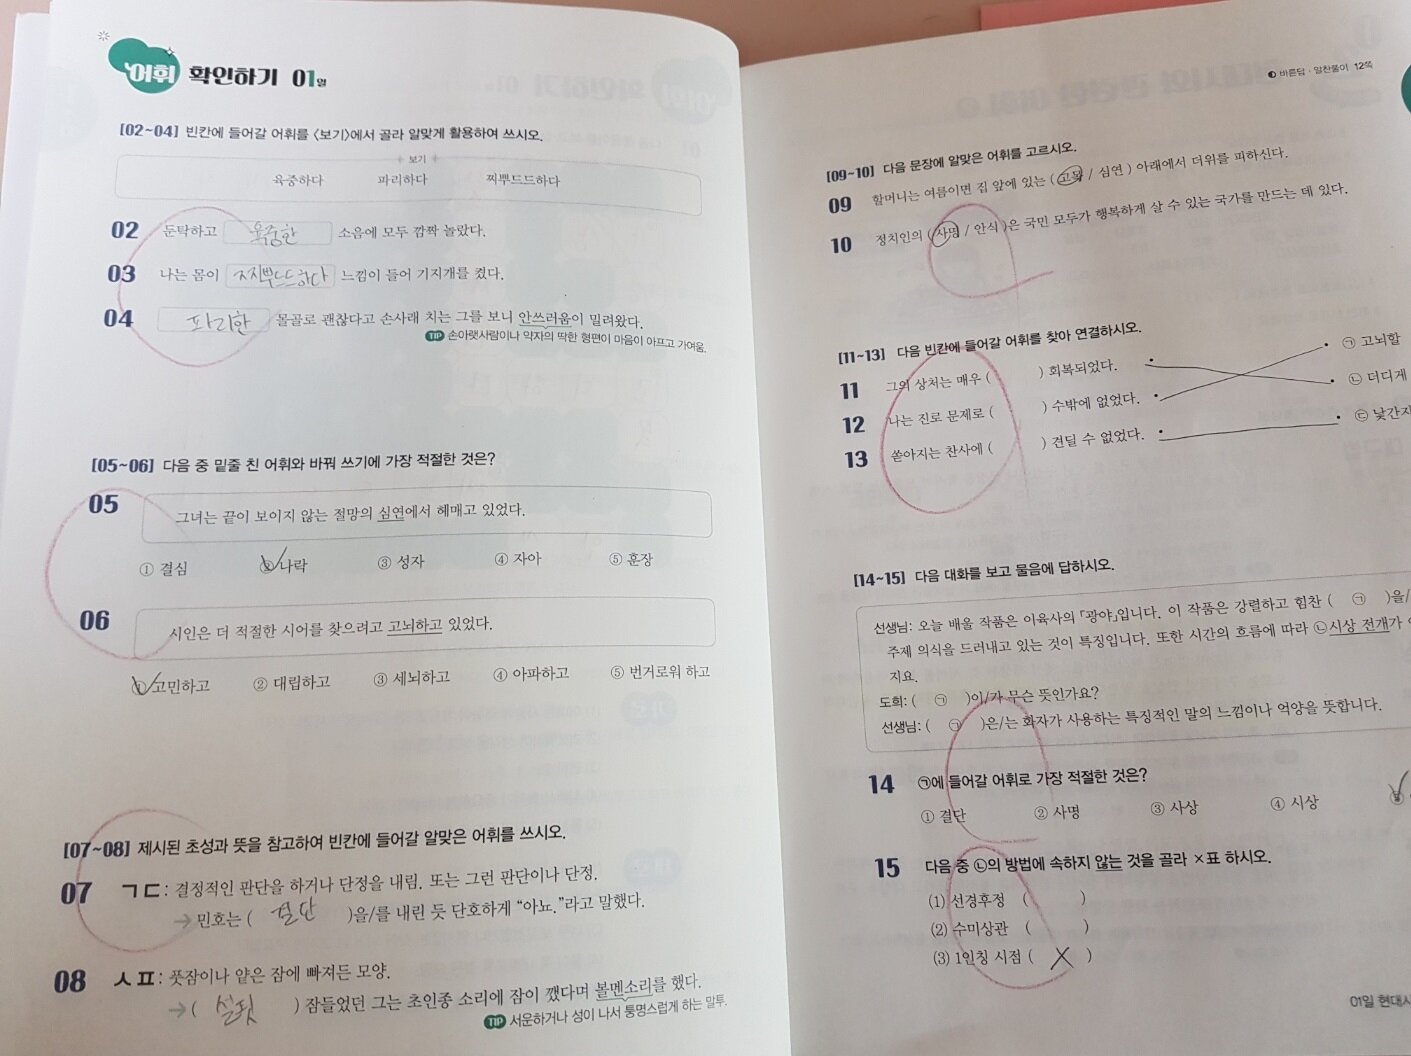 어휘 확인하기 01일
[02~04] 빈칸에 들어갈 어휘를 〈보기〉에서 골라 알맞게 활용하여 쓰시오.
보기
육중하다 파리하다 찌뿌드드하다
02 둔탁하고 육중한 소음에 모두 깜짝 놀랐다.
03 나는 몸이 찌뿌드드하다 느낌이 들어 기지개를 켰다.
04 파리한 몰골로 괜찮다고 손사래 치는 그를 보니 안쓰러움이 밀려왔다.
TIP 손아랫사람이나 약자의 딱한 형편이 마음이 아프고 가여움.
[05~06] 다음 중 밑줄 친 어휘와 바꿔 쓰기에 가장 적절한 것은?
05 그녀는 끝이 보이지 않는 절망의 심연에서 헤매고 있었다.
① 결심 ② 나락 ③ 성자 ④ 자아 ⑤ 훈장
06 시인은 더 적절한 시어를 찾으려고 고뇌하고 있었다.
① 고민하고 ② 대립하고 ③ 세뇌하고 ④ 아파하고 ⑤ 번거로워 하고
[07~08] 제시된 초성과 뜻을 참고하여 빈칸에 들어갈 알맞은 어휘를 쓰시오.
07 ㄱㄷ: 결정적인 판단을 하거나 단정을 내림. 또는 그런 판단이나 단정.
→ 민호는 ( 결단 )을/를 내린 듯 단호하게 “아뇨.”라고 말했다.
08 ㅅㅍ: 풋잠이나 얕은 잠에 빠져든 모양.
→ ( 설핏 ) 잠들었던 그는 초인종 소리에 잠이 깼다며 볼멘소리를 했다.
TIP 서운하거나 성이 나서 퉁명스럽게 하는 말투.
바른답·알찬풀이 12쪽
[09~10] 다음 문장에 알맞은 어휘를 고르시오.
09 할머니는 여름이면 집 앞에 있는 ( 고목 / 심연 ) 아래에서 더위를 피하신다.
10 정치인의 ( 사명 / 안식 )은 국민 모두가 행복하게 살 수 있는 국가를 만드는 데 있다.
[11~13] 다음 빈칸에 들어갈 어휘를 찾아 연결하시오.
11 그의 상처는 매우 ( ) 회복되었다. • • ㉠ 고뇌할
12 나는 진로 문제로 ( ) 수밖에 없었다. • • ㉡ 더디게
13 쏟아지는 찬사에 ( ) 견딜 수 없었다. • • ㉢
[14~15] 다음 대화를 보고 물음에 답하시오.
선생님: 오늘 배울 작품은 이육사의 「광야」입니다. 이 작품은 강렬하고 힘찬 ( ㉠ )을/
주제 의식을 드러내고 있는 것이 특징입니다. 또한 시간의 흐름에 따라 ㉡시상 전개가
지요.
도희: ( ㉠ )이/가 무슨 뜻인가요?
선생님: ( ㉠ )은/는 화자가 사용하는 특징적인 말의 느낌이나 억양을 뜻합니다.
14 ㉠에 들어갈 어휘로 가장 적절한 것은?
① 결단 ② 사명 ③ 사상 ④ 시상
15 다음 중 ㉡의 방법에 속하지 않는 것을 골라 ×표 하시오.
(1) 선경후정 ( )
(2) 수미상관 ( )
(3) 1인칭 시점 ( X )
01일